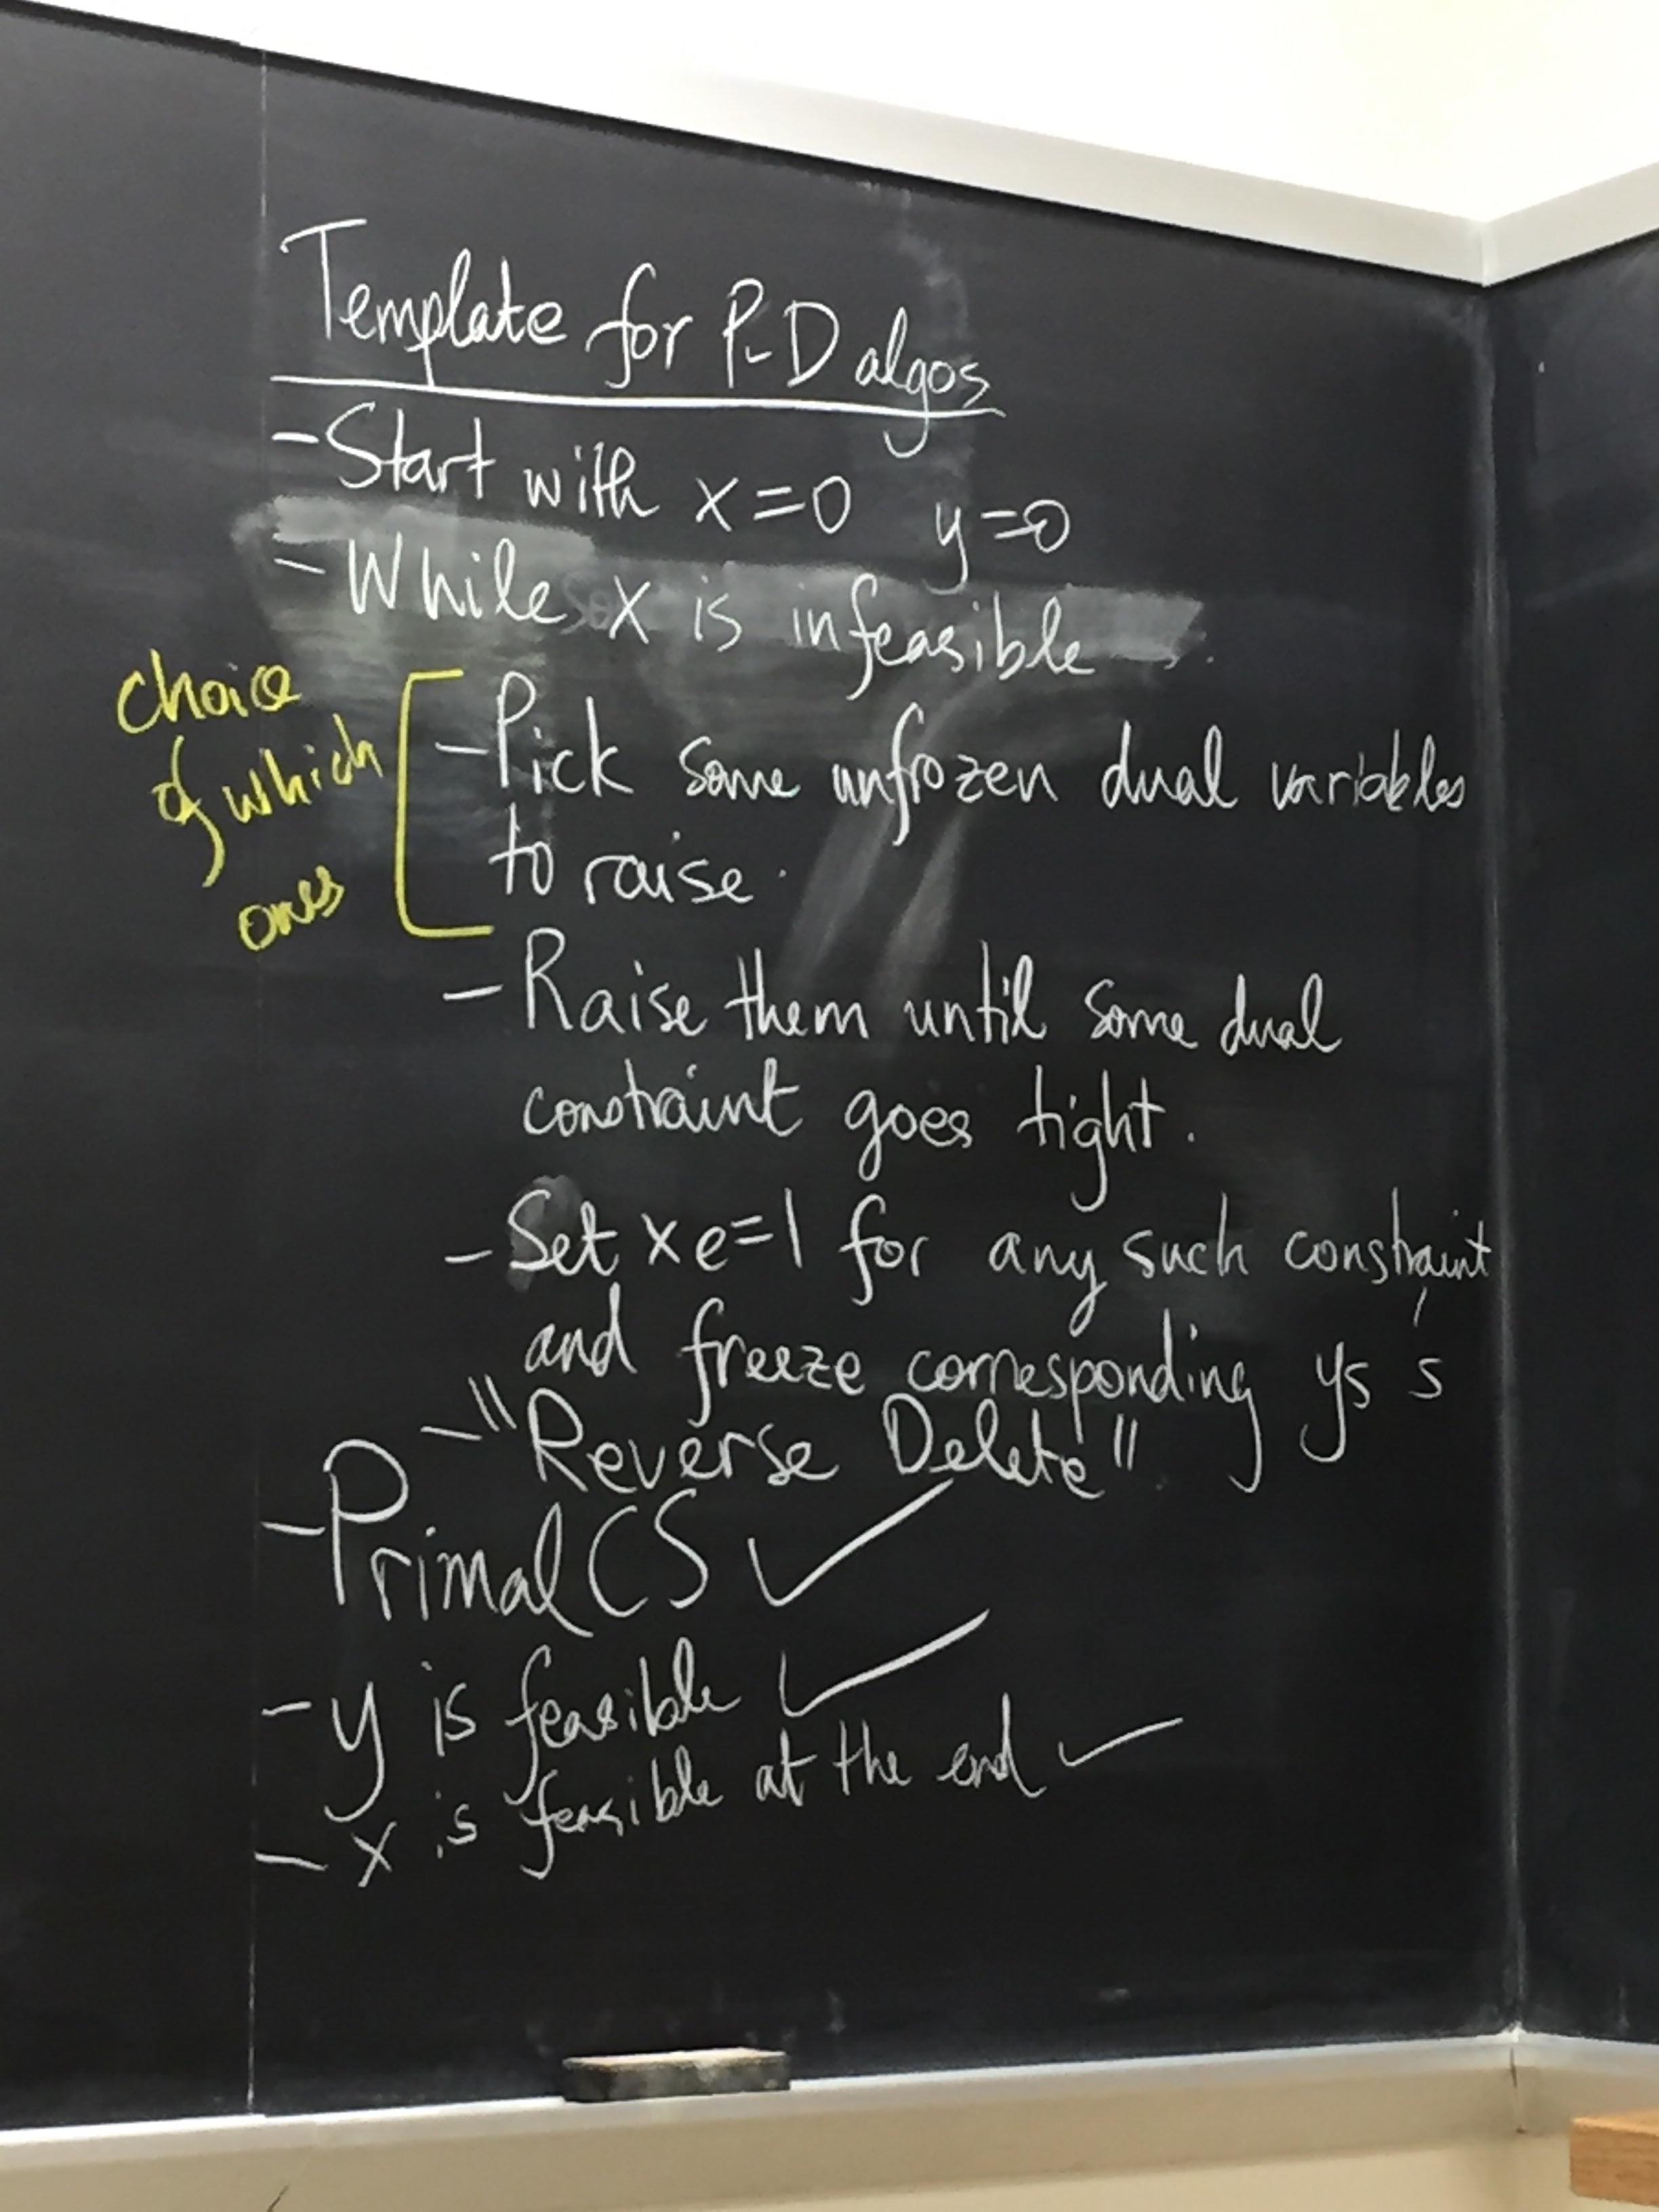 Template for P-D algos
- Start with x=0 y=0
- While x is infeasible
choice
of which
ones
- Pick some unfrozen dual variables
to raise.
- Raise them until some dual
constraint goes tight.
- Set xe=1 for any such constraint
and freeze corresponding ys's
- "Reverse Delete"
- Primal CS ✓
- y is feasible ✓
- x is feasible at the end ✓